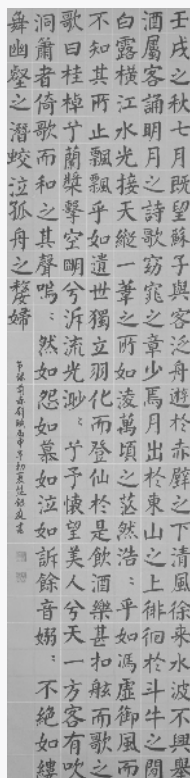 壬戌之秋七月既望蘇子與客泛舟遊於赤壁之下清風徐來水波不興舉
酒屬客誦明月之詩歌窈窕之章少焉月出於東山之上徘徊於斗牛之間
白露橫江水光接天縱一葦之所如凌萬頃之茫然浩〻乎如馮虛御風而
不知其所止飄飄乎如遺世獨立羽化而登仙於是飲酒樂甚扣舷而歌之
歌曰桂棹兮蘭槳擊空明兮泝流光渺〻兮予懷望美人兮天一方客有吹
洞簫者倚歌而和之其聲嗚〻然如怨如慕如泣如訴餘音嫋〻不絕如縷
舞幽壑之潛蛟泣孤舟之嫠婦
節錄前赤壁賦丙申年初夏書